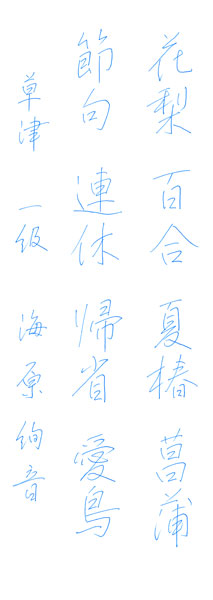 花梨 百合 夏椿 菖蒲
節句 連休 帰省 愛鳥
草津 一級 海原絢音